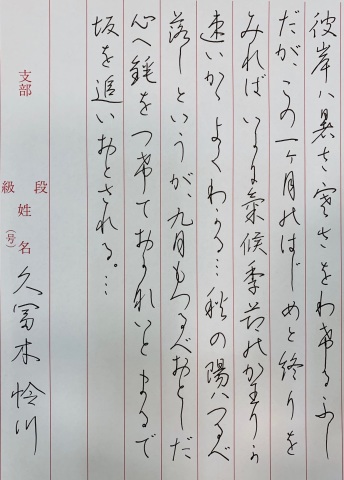 彼岸ハ暑さ寒さをわけるふし
だが、この一ヶ月のはじめと終りを
みればいかに氣候季節のかわりが
速いかよくわかる…秋の陽ハつるべ
落しというが、九月もつるべおとしだ
心へ錘をつけておかないとまるで
坂を追いおとされる。…
支部 段級 姓名(号) 久冨木怜川